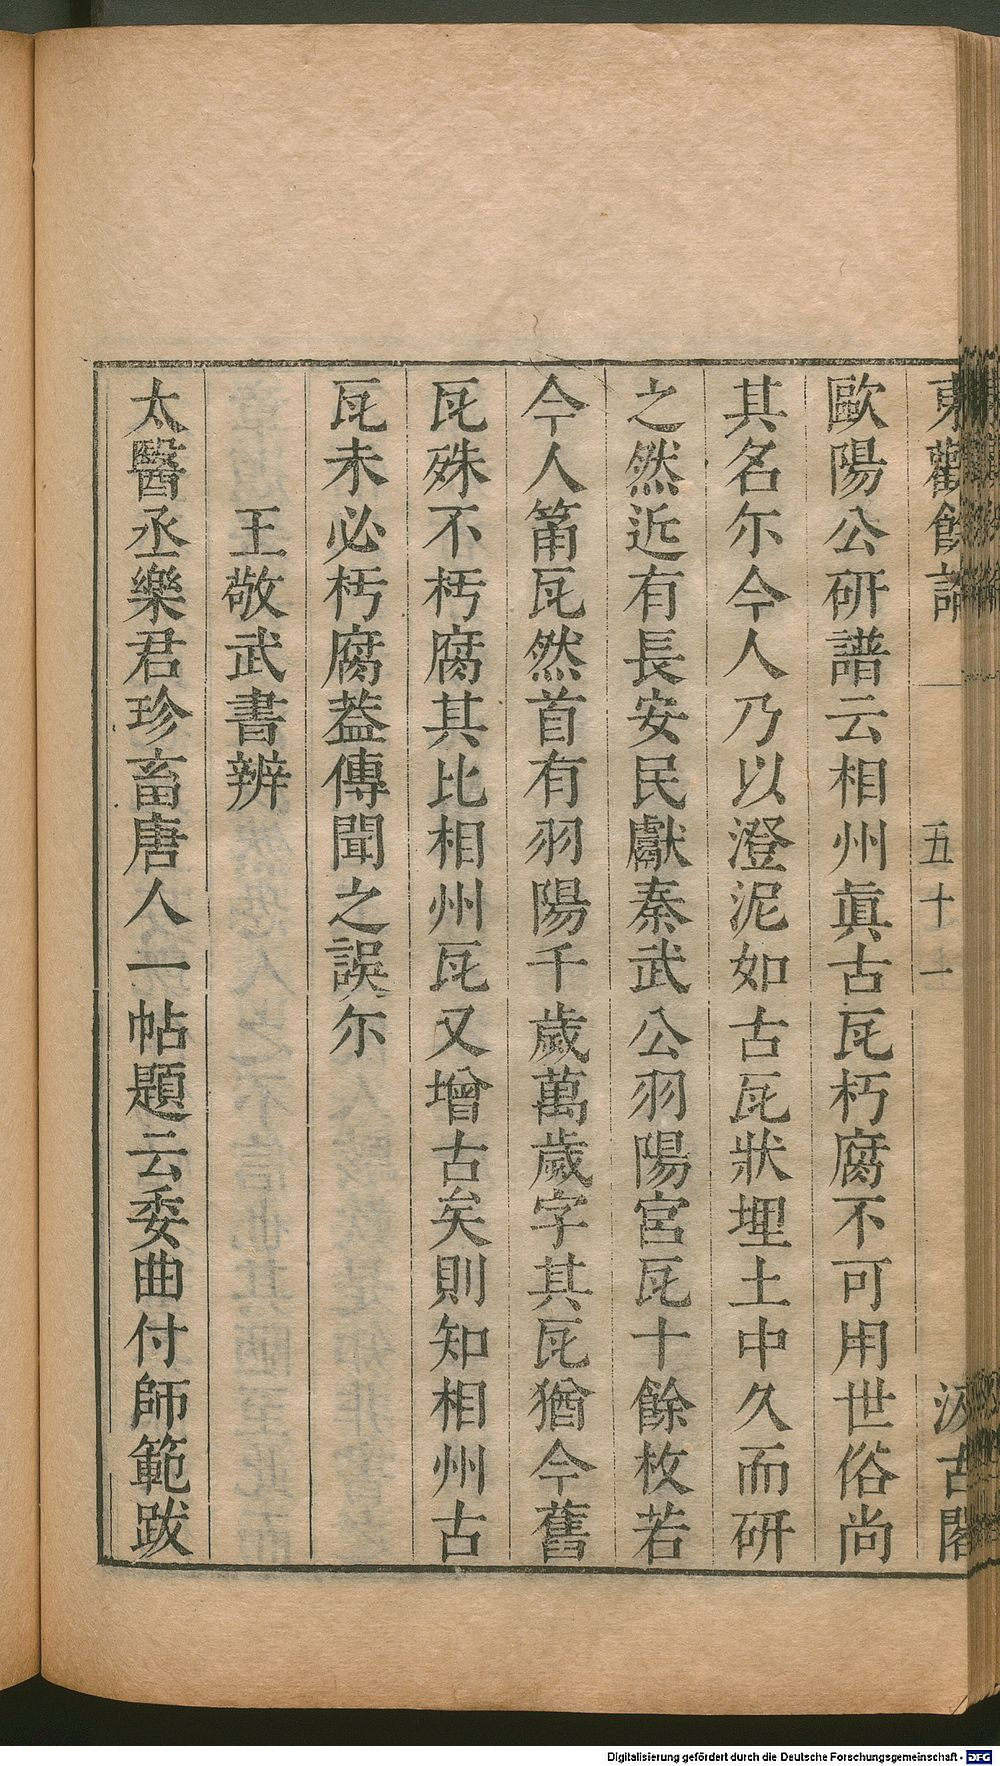 東觀餘論 五十一 汲古閣
歐陽公硏譜云相州眞古瓦朽腐不可用世俗尚
其名尓今人乃以澄泥如古瓦狀埋土中久而硏
之然近有長安民獻秦武公羽陽宮瓦十餘枚若
今人筩瓦然首有羽陽千歲萬歲字其瓦猶今舊
瓦殊不朽腐其比相州瓦又增古矣則知相州古
瓦未必朽腐葢傳聞之誤尓
王敬武書辨
太醫丞樂君珍畜唐人一帖題云委曲付師範跋
Digitalisierung gefördert durch die Deutsche Forschungsgemeinschaft - DFG